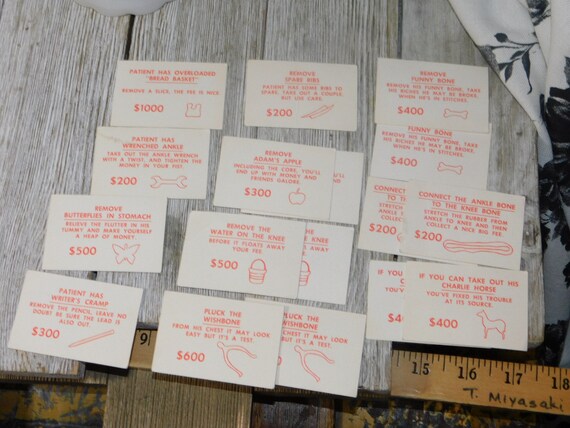 PATIENT HAS OVERLOADED
"BREAD BASKET"
REMOVE A SLICE, THE FEE IS NICE
$1000
REMOVE
SPARE RIBS
PATIENT HAS MORE RIBS TO
SPARE, TAKE OUT A COUPLE,
BUT USE CARE.
$200
REMOVE
FUNNY BONE
REMOVE HIS FUNNY BONE, TAKE
HIS RICHES HE MAY BE BROKE,
WHEN HE'S IN STITCHES.
$400
PATIENT HAS
WRENCHED ANKLE
TAKE OUT THE ANKLE WRENCH
WITH A TWIST, AND TIGHTEN THE
MONEY IN YOUR FIST.
$200
REMOVE
ADAM'S APPLE
INCLUDING THE CORE, YOU'LL
END UP WITH MONEY AND
FRIENDS GALORE.
$300
FUNNY BONE
HIS RICHES HE MAY BE BROKE,
WHEN HE'S IN STITCHES.
$400
REMOVE
BUTTERFLIES IN STOMACH
RELIEVE THE FLUTTER IN HIS
TUMMY AND MAKE YOURSELF
A HEAP OF MONEY
$500
REMOVE THE
WATER ON THE KNEE
BEFORE IT FLOATS AWAY
YOUR FEE.
$500
CONNECT
TO
STRETCH
ANKLE
COLLECT
$200
CONNECT THE ANKLE BONE
TO THE KNEE BONE
STRETCH THE RUBBER FROM
ANKLE TO KNEE AND THEN
COLLECT A NICE BIG FEE
$200
PATIENT HAS
WRITER'S CRAMP
REMOVE THE PENCIL, LEAVE NO
DOUBT BE SURE THE LEAD IS
ALSO OUT.
$300
PLUCK THE
WISHBONE
FROM HIS CHEST IT MAY LOOK
EASY BUT IT'S A TEST
$600
PLUCK THE
WISHBONE
CHEST IT MAY LOOK
IT'S A TEST
IF YOU
YOU'VE
IF YOU CAN TAKE OUT HIS
CHARLIE HORSE
YOU'VE FIXED HIS TROUBLE
AT ITS SOURCE.
$400
9
15
16
17
18
T. Miyasaki